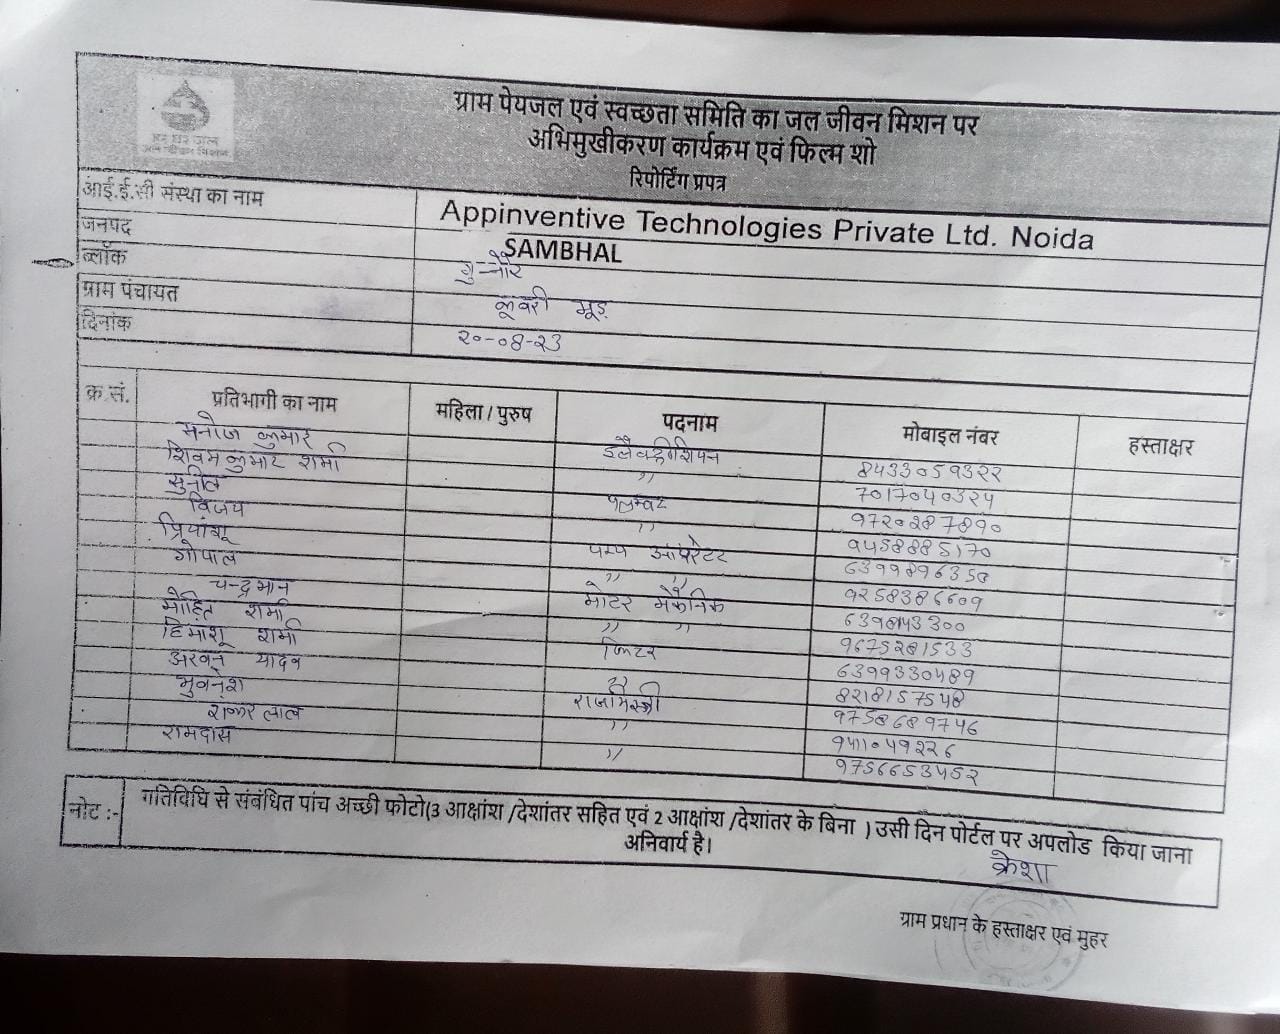 हर घर जल
जल जीवन मिशन
ग्राम पेयजल एवं स्वच्छता समिति का जल जीवन मिशन पर
अभिमुखीकरण कार्यक्रम एवं फिल्म शो
रिपोर्टिंग प्रपत्र
आई.ई.सी संस्था का नाम Appinventive Technologies Private Ltd. Noida
जनपद SAMBHAL
ब्लॉक गुन्नौर
ग्राम पंचायत
दिनांक २०-०8-२3
क्र.सं. प्रतिभागी का नाम महिला / पुरुष पदनाम मोबाइल नंबर हस्ताक्षर
मनोज कुमार इलैक्ट्रीशियन 8433059322
शिवम कुमार शर्मा " 7017040324
सुनील पलम्बर 9720287890
विजय " 9458885170
प्रियांशू पम्प ऑपरेटर 6399896350
गोपाल " " 9258386609
चन्द्रभान मोटर मैकेनिक
मोहित शर्मा " " 9675281533
हिमांशू शर्मा फिटर 6399330489
यादव " 8218157548
भुवनेश राजमिस्त्री 9758689746
शंकर लाल " 9411049226
रामदास " 9756653452
नोट :- गतिविधि से संबंधित पांच अच्छी फोटो(3 आक्षांश /देशांतर सहित एवं 2 आक्षांश /देशांतर के बिना ) उसी दिन पोर्टल पर अपलोड किया जाना
अनिवार्य है।
ग्राम प्रधान के हस्ताक्षर एवं मुहर